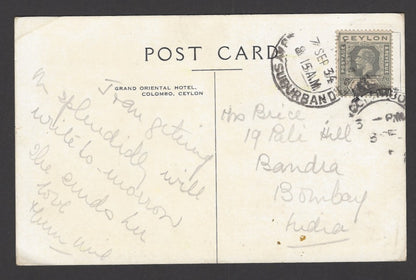 POST CARD
GRAND ORIENTAL HOTEL,
COLOMBO, CEYLON
getting
on splendidly will
write to-morrow
She sends her
love
Mrs Brice
19 Pali Hill
Bandra
Bombay
India
CEYLON
7 SEP 34
8 15 A.M.
SUBURBAND